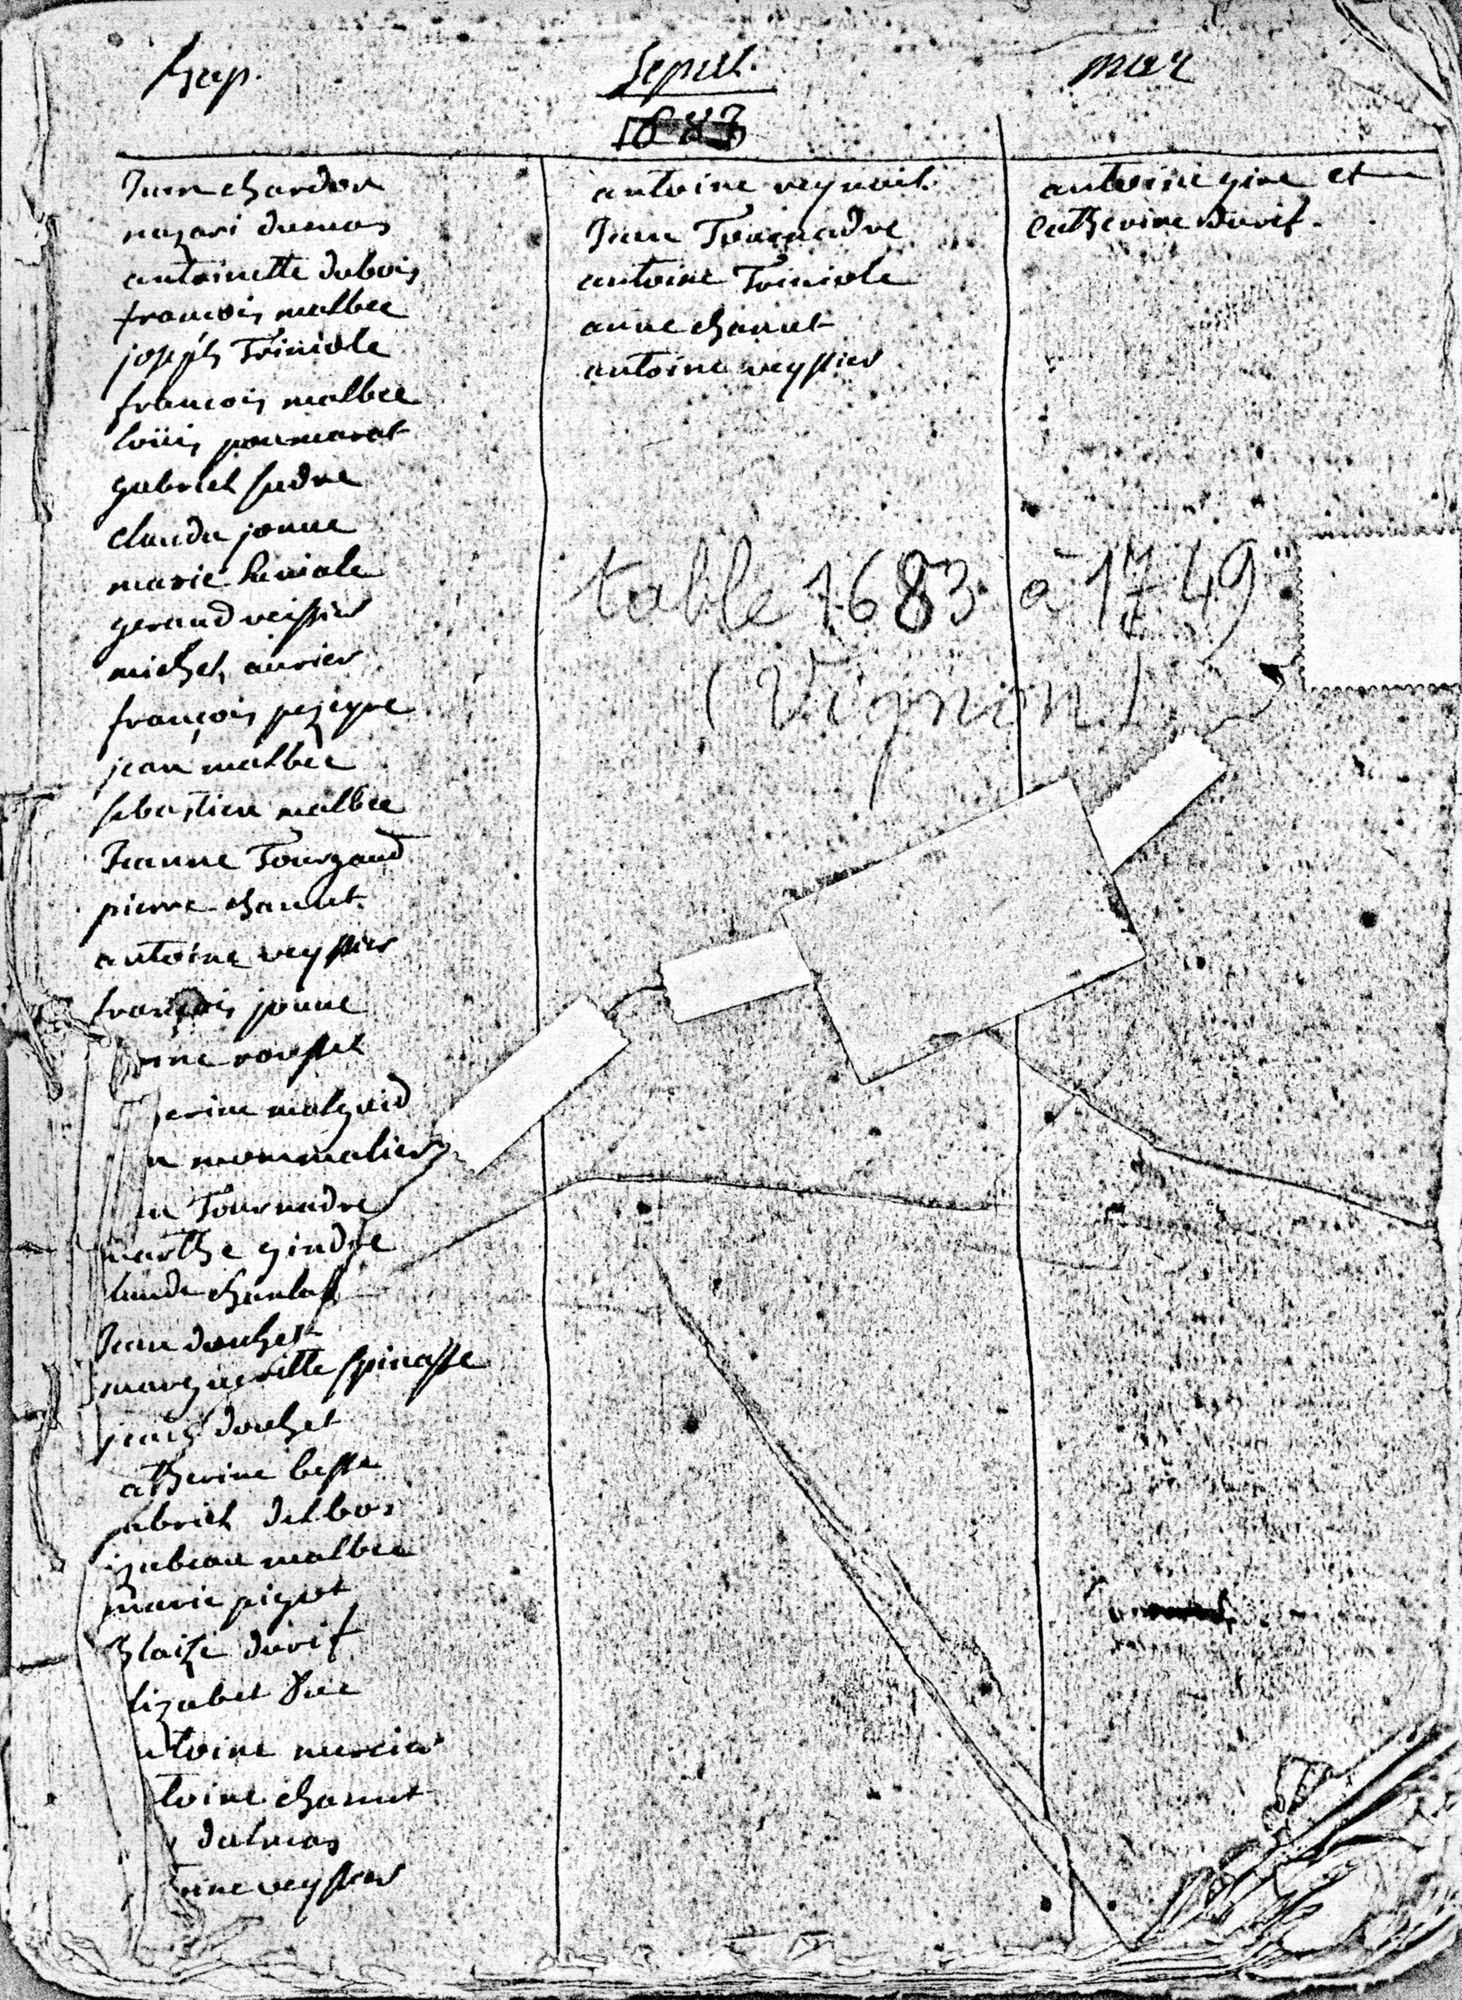 bap.
Sepult.
mar
1683
Jean chardon
nazari dumas
antoinette dubois
francois malbec
joseph Triniole
francois malbec
loüis poumarat
gabriel sudre
claude jouve
marie
geraud veissier
michel aurier
françois pezeyre
jean malbec
sebastien malbec
Jeanne Tourgaud
pierre chanut
antoine veyssier
françois jouve
oine rousset
erine malguid
n mommalier
n Tournadre
marthe gindre
laude chanlat
Jean douhet
margueritte spinasse
jean douhet
atherine besse
abriel delbos
izabeau malbec
marie pigot
Blaize durif
lizabet
ntoine mercier
toine chanut
dalmas
oine veyssier
antoine veyssier
Jean Tournadre
antoine Triniole
anne chanut
antoine veyssier
antoine gire et
catherine durif.
table 1683 à 1749
(Vignon)